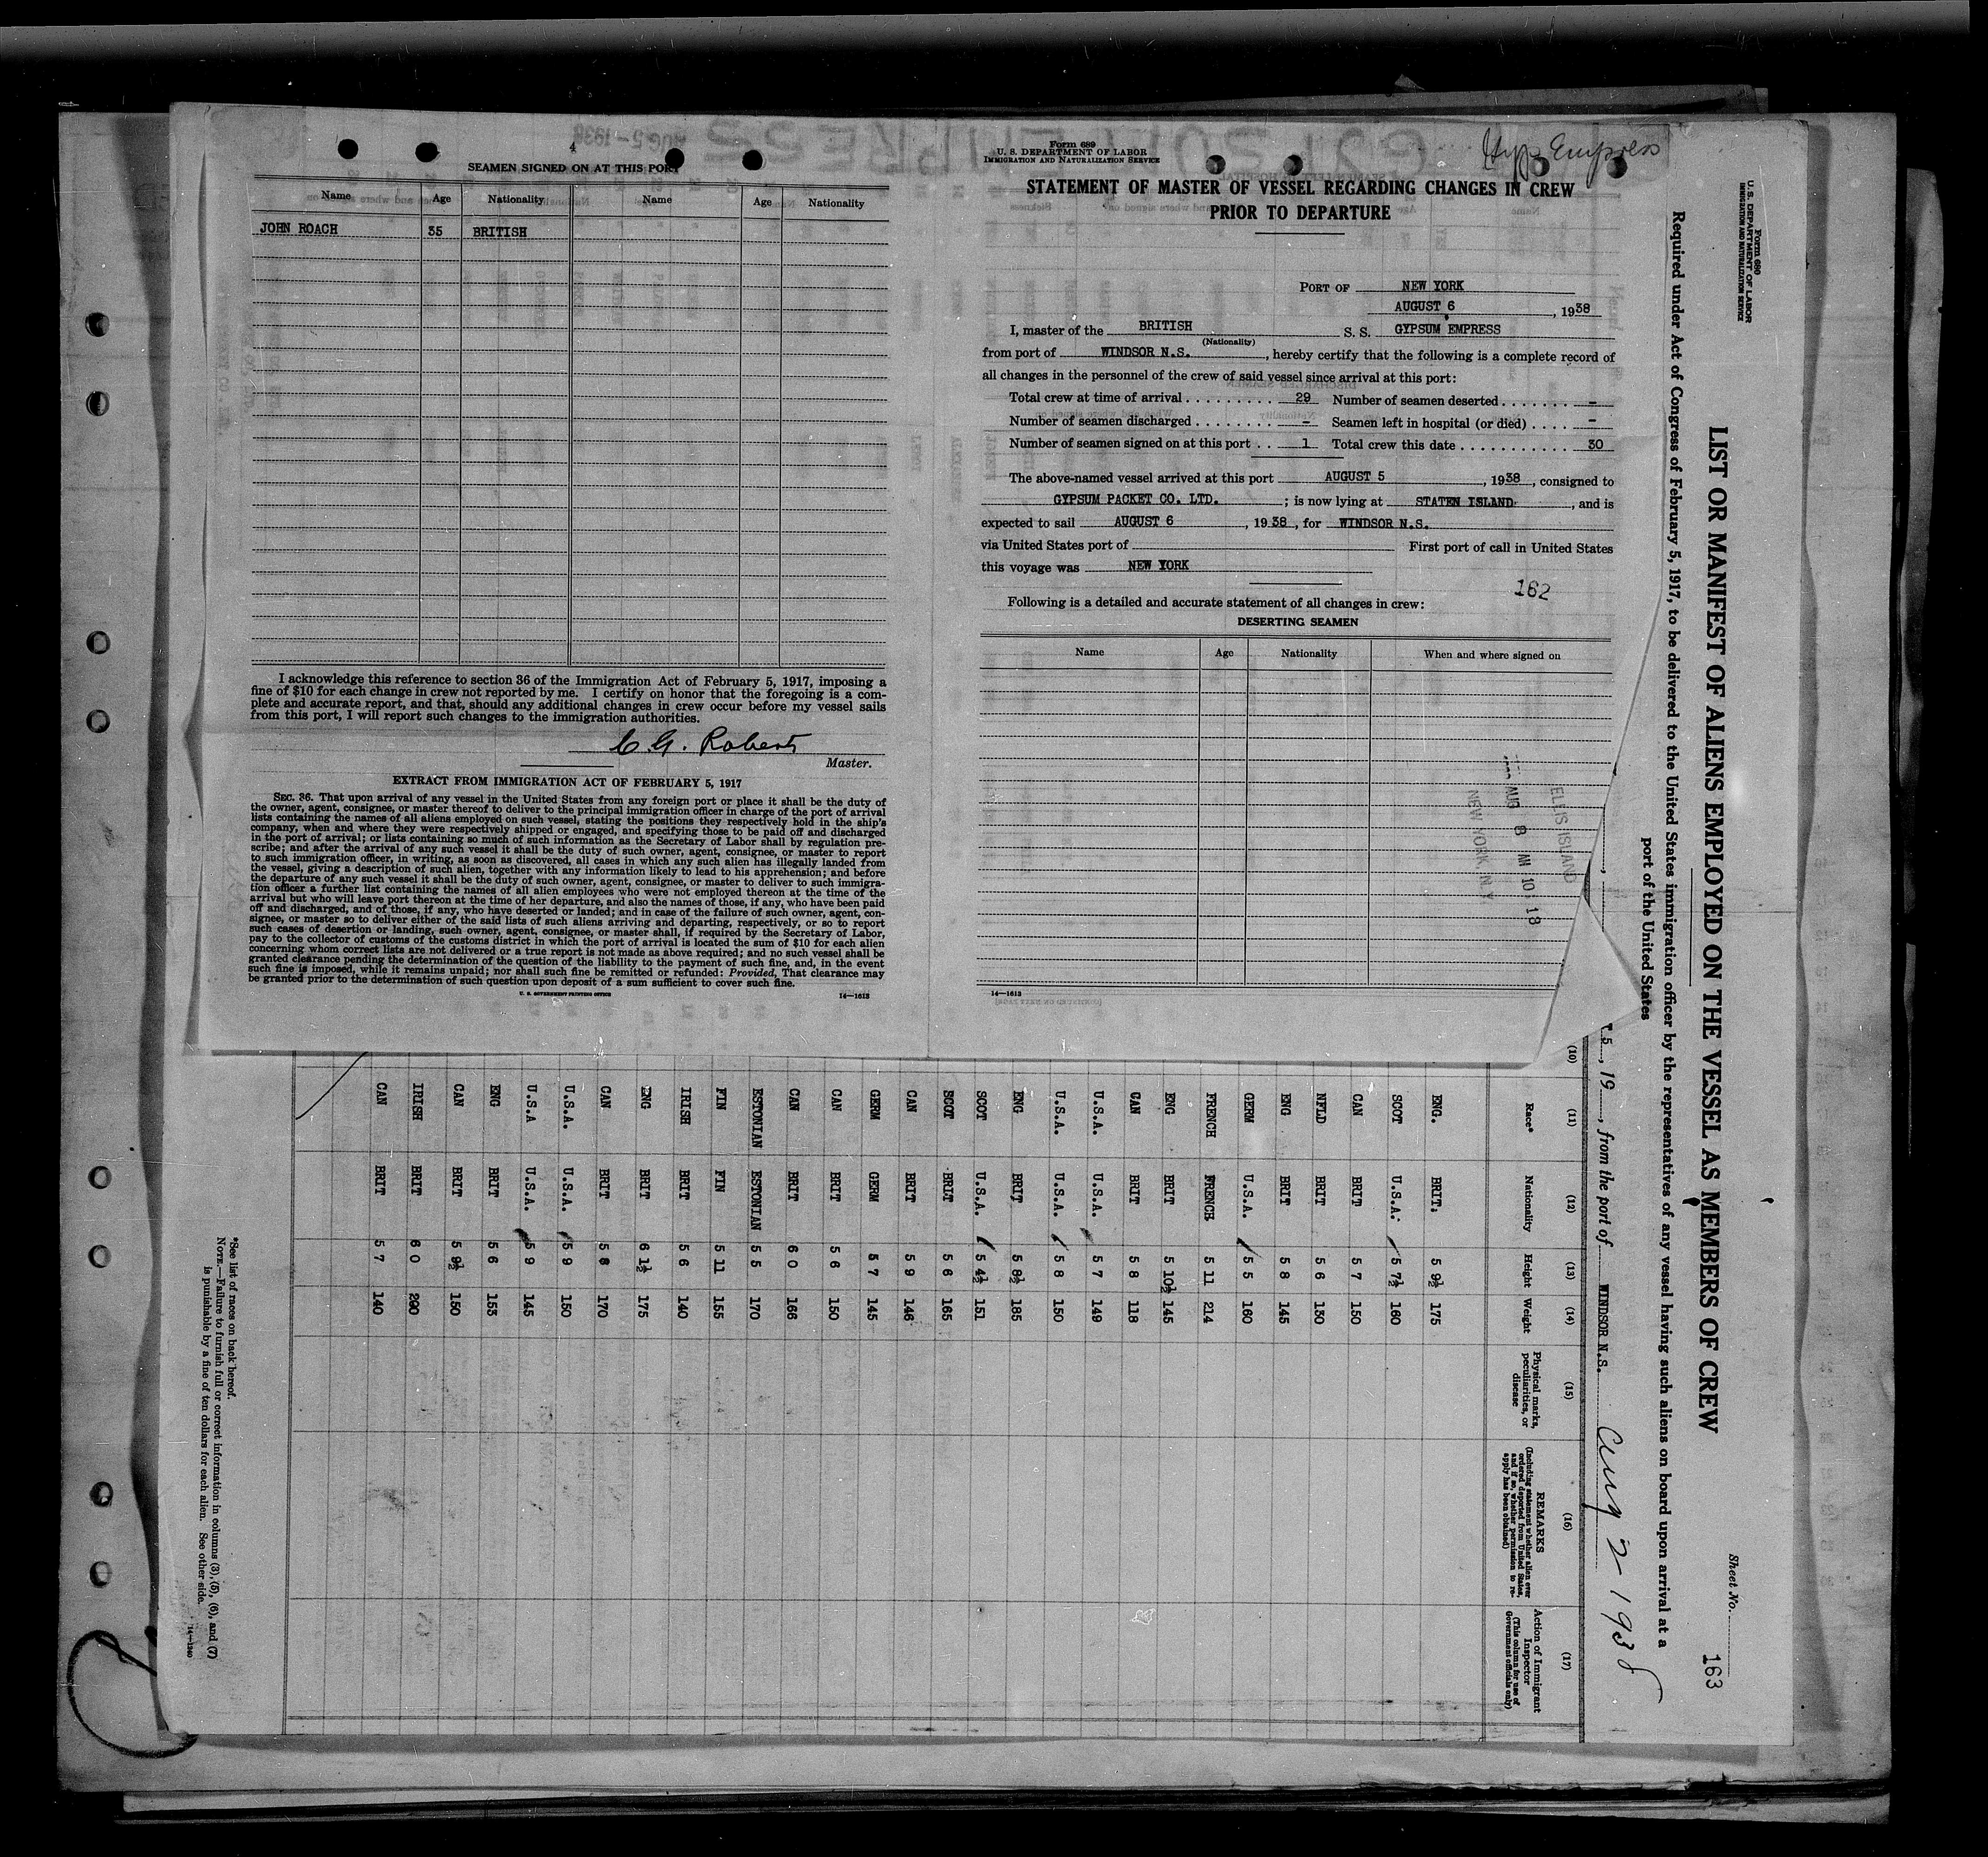 4
SEAMEN SIGNED ON AT THIS PORT
Name Age Nationality Name Age Nationality
JOHN ROACH 35 BRITISH
I acknowledge this reference to section 36 of the Immigration Act of February 5, 1917, imposing a
fine of $10 for each change in crew not reported by me. I certify on honor that the foregoing is a com-
plete and accurate report, and that, should any additional changes in crew occur before my vessel sails
from this port, I will report such changes to the immigration authorities.
C. G. Roberts
Master.
EXTRACT FROM IMMIGRATION ACT OF FEBRUARY 5, 1917
SEC. 36. That upon arrival of any vessel in the United States from any foreign port or place it shall be the duty of
the owner, agent, consignee, or master thereof to deliver to the principal immigration officer in charge of the port of arrival
lists containing the names of all aliens employed on such vessel, stating the positions they respectively hold in the ship's
company, when and where they were respectively shipped or engaged, and specifying those to be paid off and discharged
in the port of arrival; or lists containing so much of such information as the Secretary of Labor shall by regulation pre-
scribe; and after the arrival of any such vessel it shall be the duty of such owner, agent, consignee, or master to report
to such immigration officer, in writing, as soon as discovered, all cases in which any such alien has illegally landed from
the vessel, giving a description of such alien, together with any information likely to lead to his apprehension; and before
the departure of any such vessel it shall be the duty of such owner, agent, consignee, or master to deliver to such immigra-
tion officer a further list containing the names of all alien employees who were not employed thereon at the time of the
arrival but who will leave port thereon at the time of her departure, and also the names of those, if any, who have been paid
off and discharged, and of those, if any, who have deserted or landed; and in case of the failure of such owner, agent, con-
signee, or master so to deliver either of the said lists of such aliens arriving and departing, respectively, or so to report
such cases of desertion or landing, such owner, agent, consignee, or master shall, if required by the Secretary of Labor,
pay to the collector of customs of the customs district in which the port of arrival is located the sum of $10 for each alien
concerning whom correct lists are not delivered or a true report is not made as above required; and no such vessel shall be
granted clearance pending the determination of the question of the liability to the payment of such fine, and, in the event
such fine is imposed, while it remains unpaid; nor shall such fine be remitted or refunded: Provided, That clearance may
be granted prior to the determination of such question upon deposit of a sum sufficient to cover such fine.
U. S. GOVERNMENT PRINTING OFFICE 14—1613
Form 689
U. S. DEPARTMENT OF LABOR
IMMIGRATION AND NATURALIZATION SERVICE
Gyp Empress
STATEMENT OF MASTER OF VESSEL REGARDING CHANGES IN CREW
PRIOR TO DEPARTURE
PORT OF NEW YORK
AUGUST 6, 1938
I, master of the BRITISH S. S. GYPSUM EMPRESS
(Nationality)
from port of WINDSOR N.S., hereby certify that the following is a complete record of
all changes in the personnel of the crew of said vessel since arrival at this port:
Total crew at time of arrival 29 Number of seamen deserted –
Number of seamen discharged – Seamen left in hospital (or died) –
Number of seamen signed on at this port 1 Total crew this date 30
The above-named vessel arrived at this port AUGUST 5, 1938, consigned to
GYPSUM PACKET CO. LTD.; is now lying at STATEN ISLAND, and is
expected to sail AUGUST 6, 1938, for WINDSOR N.S.
via United States port of First port of call in United States
this voyage was NEW YORK
162
Following is a detailed and accurate statement of all changes in crew:
DESERTING SEAMEN
Name Age Nationality When and where signed on
ELLIS ISLAND
AUG 8 AM 10 13
NEW YORK, N.Y.
14—1613
Form 680
U. S. DEPARTMENT OF LABOR
IMMIGRATION AND NATURALIZATION SERVICE
Sheet No.
163
LIST OR MANIFEST OF ALIENS EMPLOYED ON THE VESSEL AS MEMBERS OF CREW
Required under Act of Congress of February 5, 1917, to be delivered to the United States immigration officer by the representatives of any vessel having such aliens on board upon arrival at a
port of the United States
5, 19, from the port of WINDSOR N.S. Aug 2 1938
(10) (11) (12) (13) (14) (15) (16) (17)
Race* Nationality Height Weight Physical marks, peculiarities, or disease REMARKS (Including statement whether alien ever ordered deported from United States, and if so, whether permission to re-apply has been obtained) Action of Immigrant Inspector (This column for use of Government officials only)
ENG. BRIT. 5 9½ 175
SCOT U.S.A. 5 7½ 160
CAN BRIT 5 7 150
NFLD BRIT 5 6 130
ENG BRIT 5 8 145
GERM U.S.A. 5 5 160
FRENCH FRENCH 5 11 214
ENG BRIT 5 10½ 145
CAN BRIT 5 8 118
U.S.A. U.S.A. 5 7 149
U.S.A. U.S.A. 5 8 150
ENG BRIT 5 8½ 185
SCOT U.S.A. 5 4½ 151
SCOT BRIT 5 6 165
CAN BRIT 5 9 146
GERM GERM 5 7 145
CAN BRIT 5 6 150
CAN BRIT 6 0 166
ESTONIAN ESTONIAN 5 5 170
FIN FIN 5 11 155
IRISH BRIT 5 6 140
ENG BRIT 6 1½ 175
CAN BRIT 5 8 170
U.S.A. U.S.A. 5 9 150
U.S.A U.S.A. 5 9 145
ENG BRIT 5 6 153
CAN BRIT 5 9½ 150
IRISH BRIT 6 0 200
CAN BRIT 5 7 140
*See list of races on back hereof.
NOTE.—Failure to furnish full or correct information in columns (3), (5), (6), and (7)
is punishable by a fine of ten dollars for each alien. See other side.
14—1240